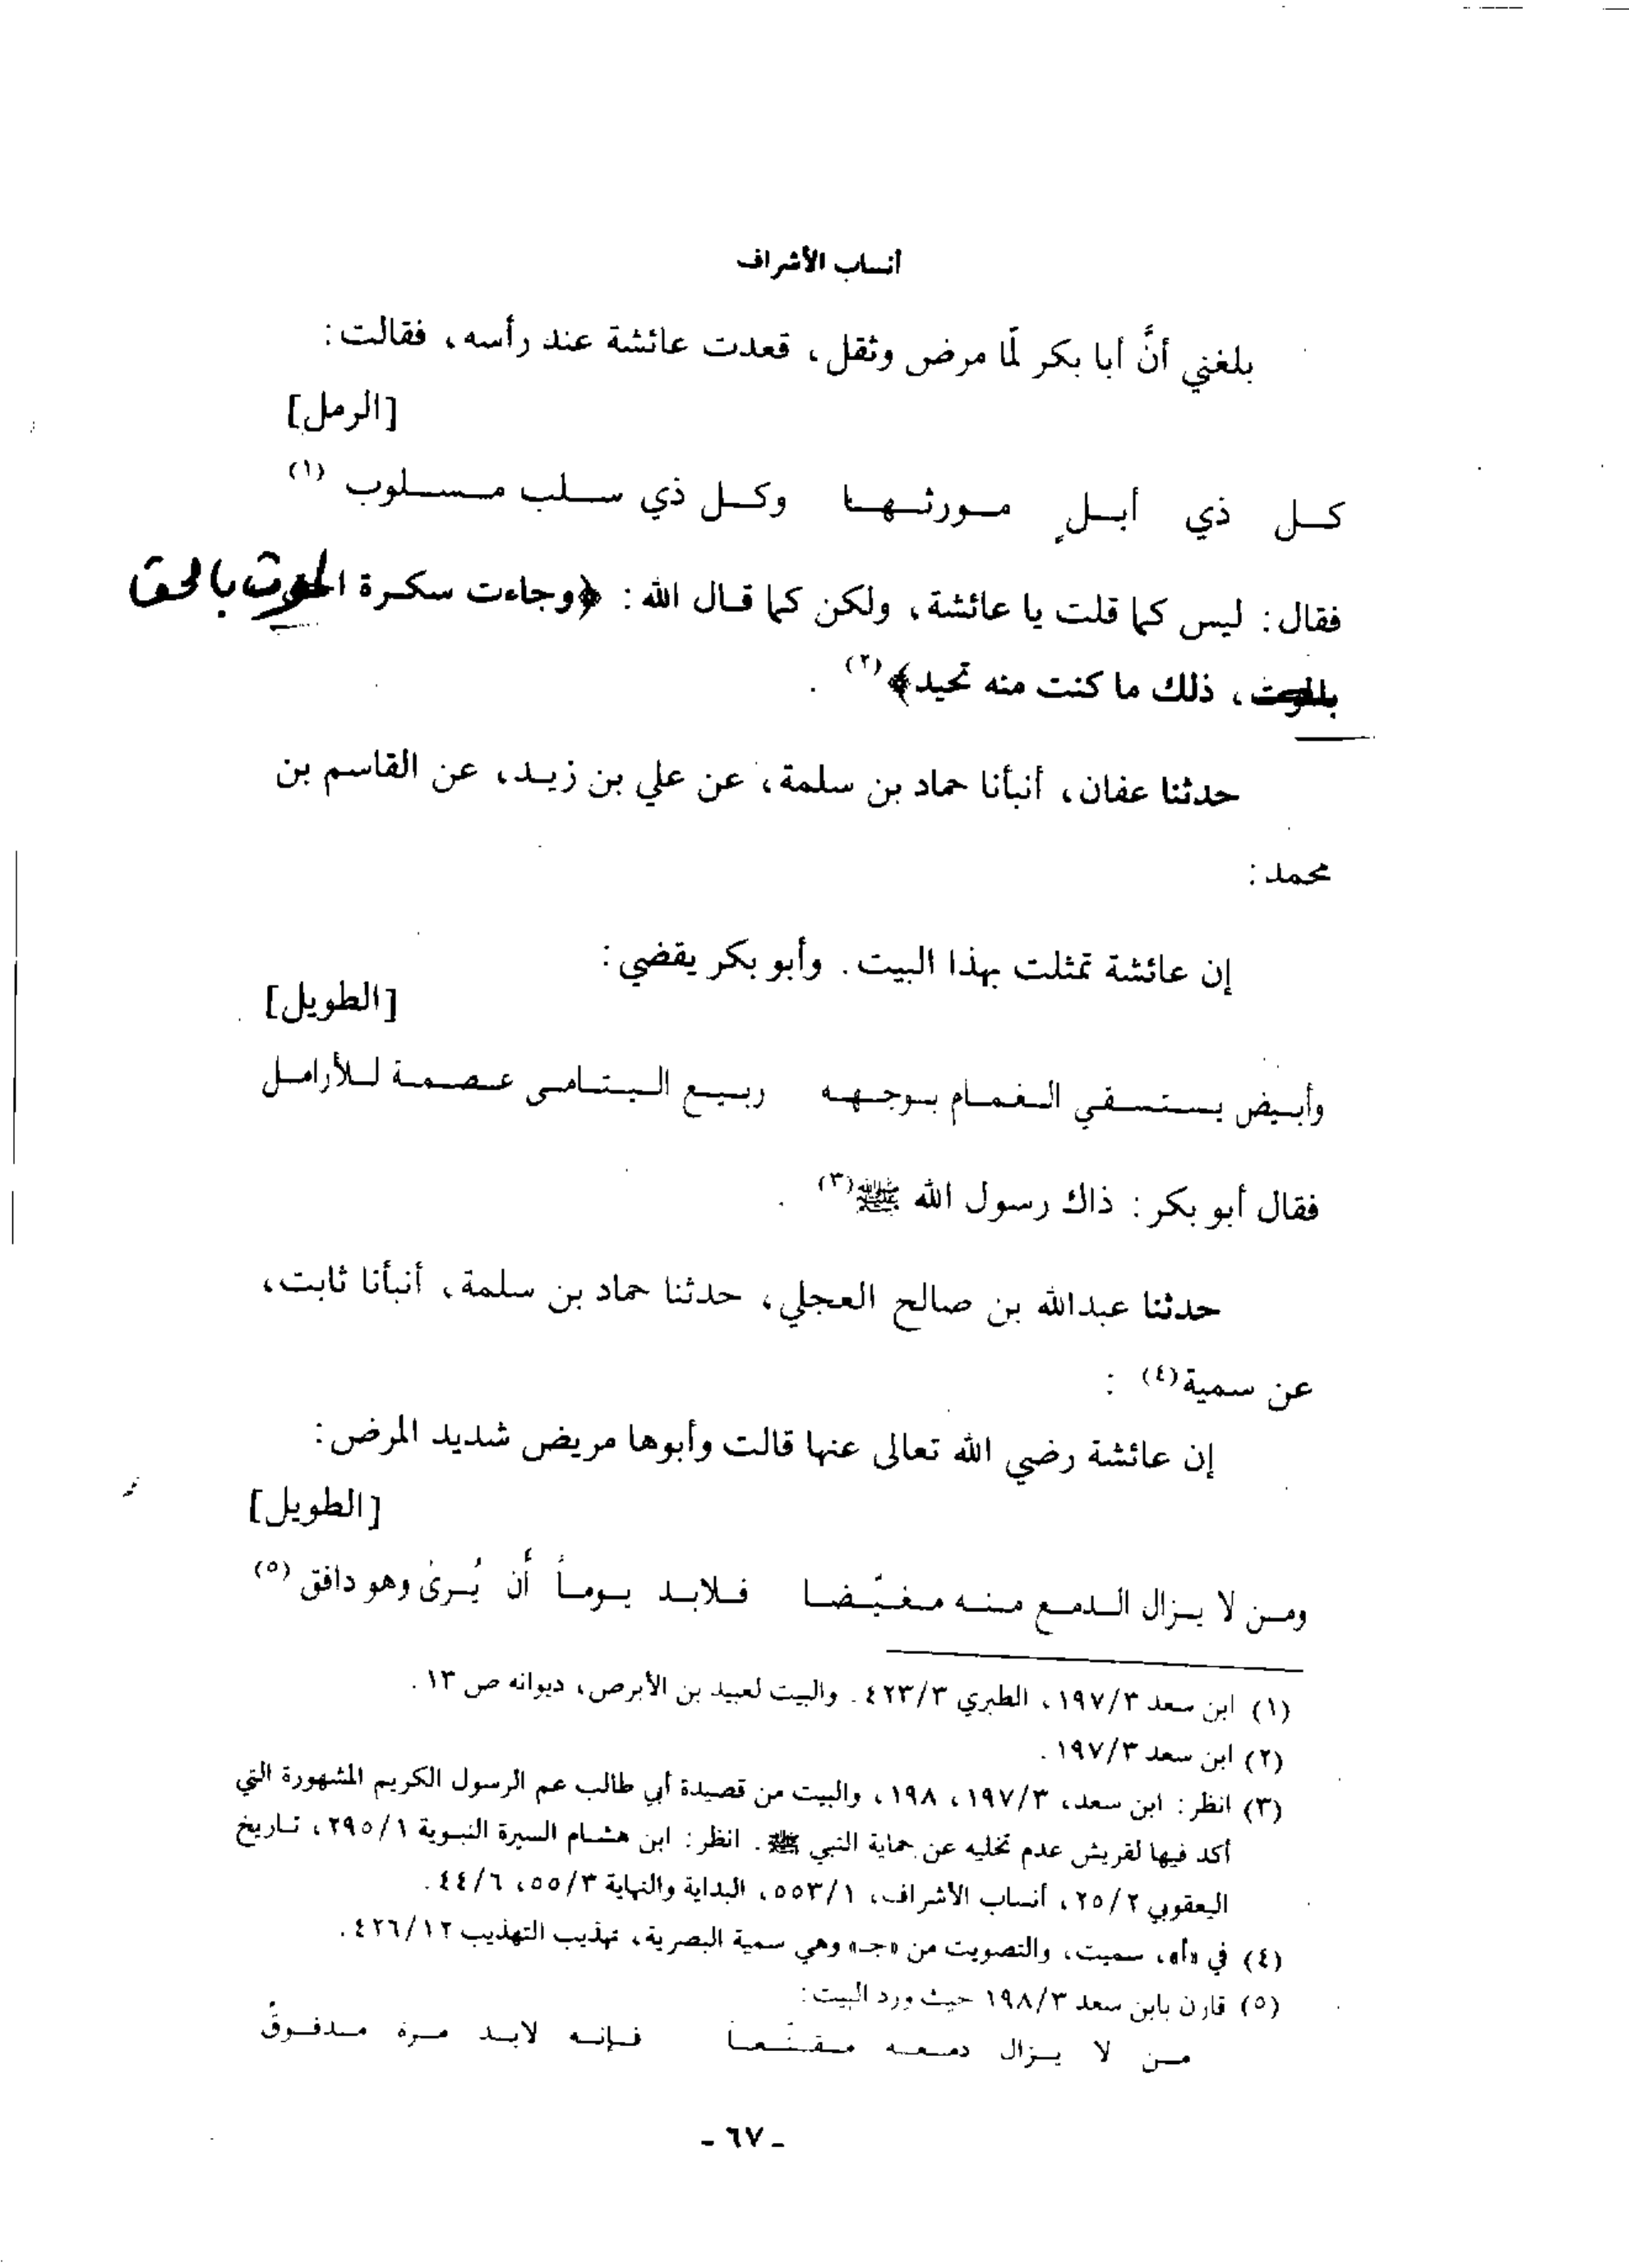 أنساب الأشراف
بلغني أنَّ أبا بكر لمّا مرض وثقل، قعدت عائشة عند رأسه، فقالت:
[الرمل]
كل ذي أبلٍ مورثها وكل ذي سلب مسلوب (١)
فقال: ليس كما قلت يا عائشة، ولكن كما قال الله: ﴿وجاءت سكرة الموت بالحق
، ذلك ما كنت منه تحيد﴾(٢).
حدثنا عفان، أنبأنا حماد بن سلمة، عن علي بن زيد، عن القاسم بن
محمد:
إن عائشة تمثلت بهذا البيت. وأبو بكر يقضي:
[الطويل]
وأبيض يستسقي الغمام بوجهه ربيع اليتامى عصمة للأرامل
فقال أبو بكر: ذاك رسول الله ﷺ(٣).
حدثنا عبدالله بن صالح العجلي، حدثنا حماد بن سلمة، أنبأنا ثابت،
عن سمية(٤):
إن عائشة رضي الله تعالى عنها قالت وأبوها مريض شديد المرض:
[الطويل]
ومن لا يزال الدمع منه مغيّضا فلابد يوماً أن يُرىٰ وهو دافق (٥)
(١) ابن سعد ١٩٧/٣، الطبري ٤٢٣/٣. والبيت لعبيد بن الأبرص، ديوانه ص ١٣.
(٢) ابن سعد ١٩٧/٣.
(٣) انظر: ابن سعد، ١٩٧/٣، ١٩٨، والبيت من قصيدة أبي طالب عم الرسول الكريم المشهورة التي
أكد فيها لقريش عدم تخليه عن حماية النبي ﷺ. انظر: ابن هشام السيرة النبوية ٢٩٥/١، تاريخ
اليعقوبي ٢٥/٢، أنساب الأشراف، ٥٥٣/١، البداية والنهاية ٥٥/٣، ٤٤/٦.
(٤) في «أ»، سميت، والتصويت من «جـ» وهي سمية البصرية، تهذيب التهذيب ٤٢٦/١٢.
(٥) قارن بابن سعد ١٩٨/٣ حيث ورد البيت:
من لا يزال دمعه مقنّعاً فإنه لابد مرة مدفوقُ
- ٦٧ -